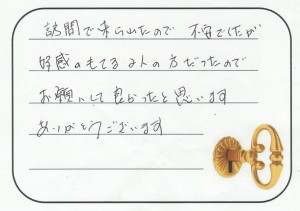 訪問で来られたので 不安でしたが
好感のもてる2人の方だったので
お願いして良かったと思います
ありがとうございます